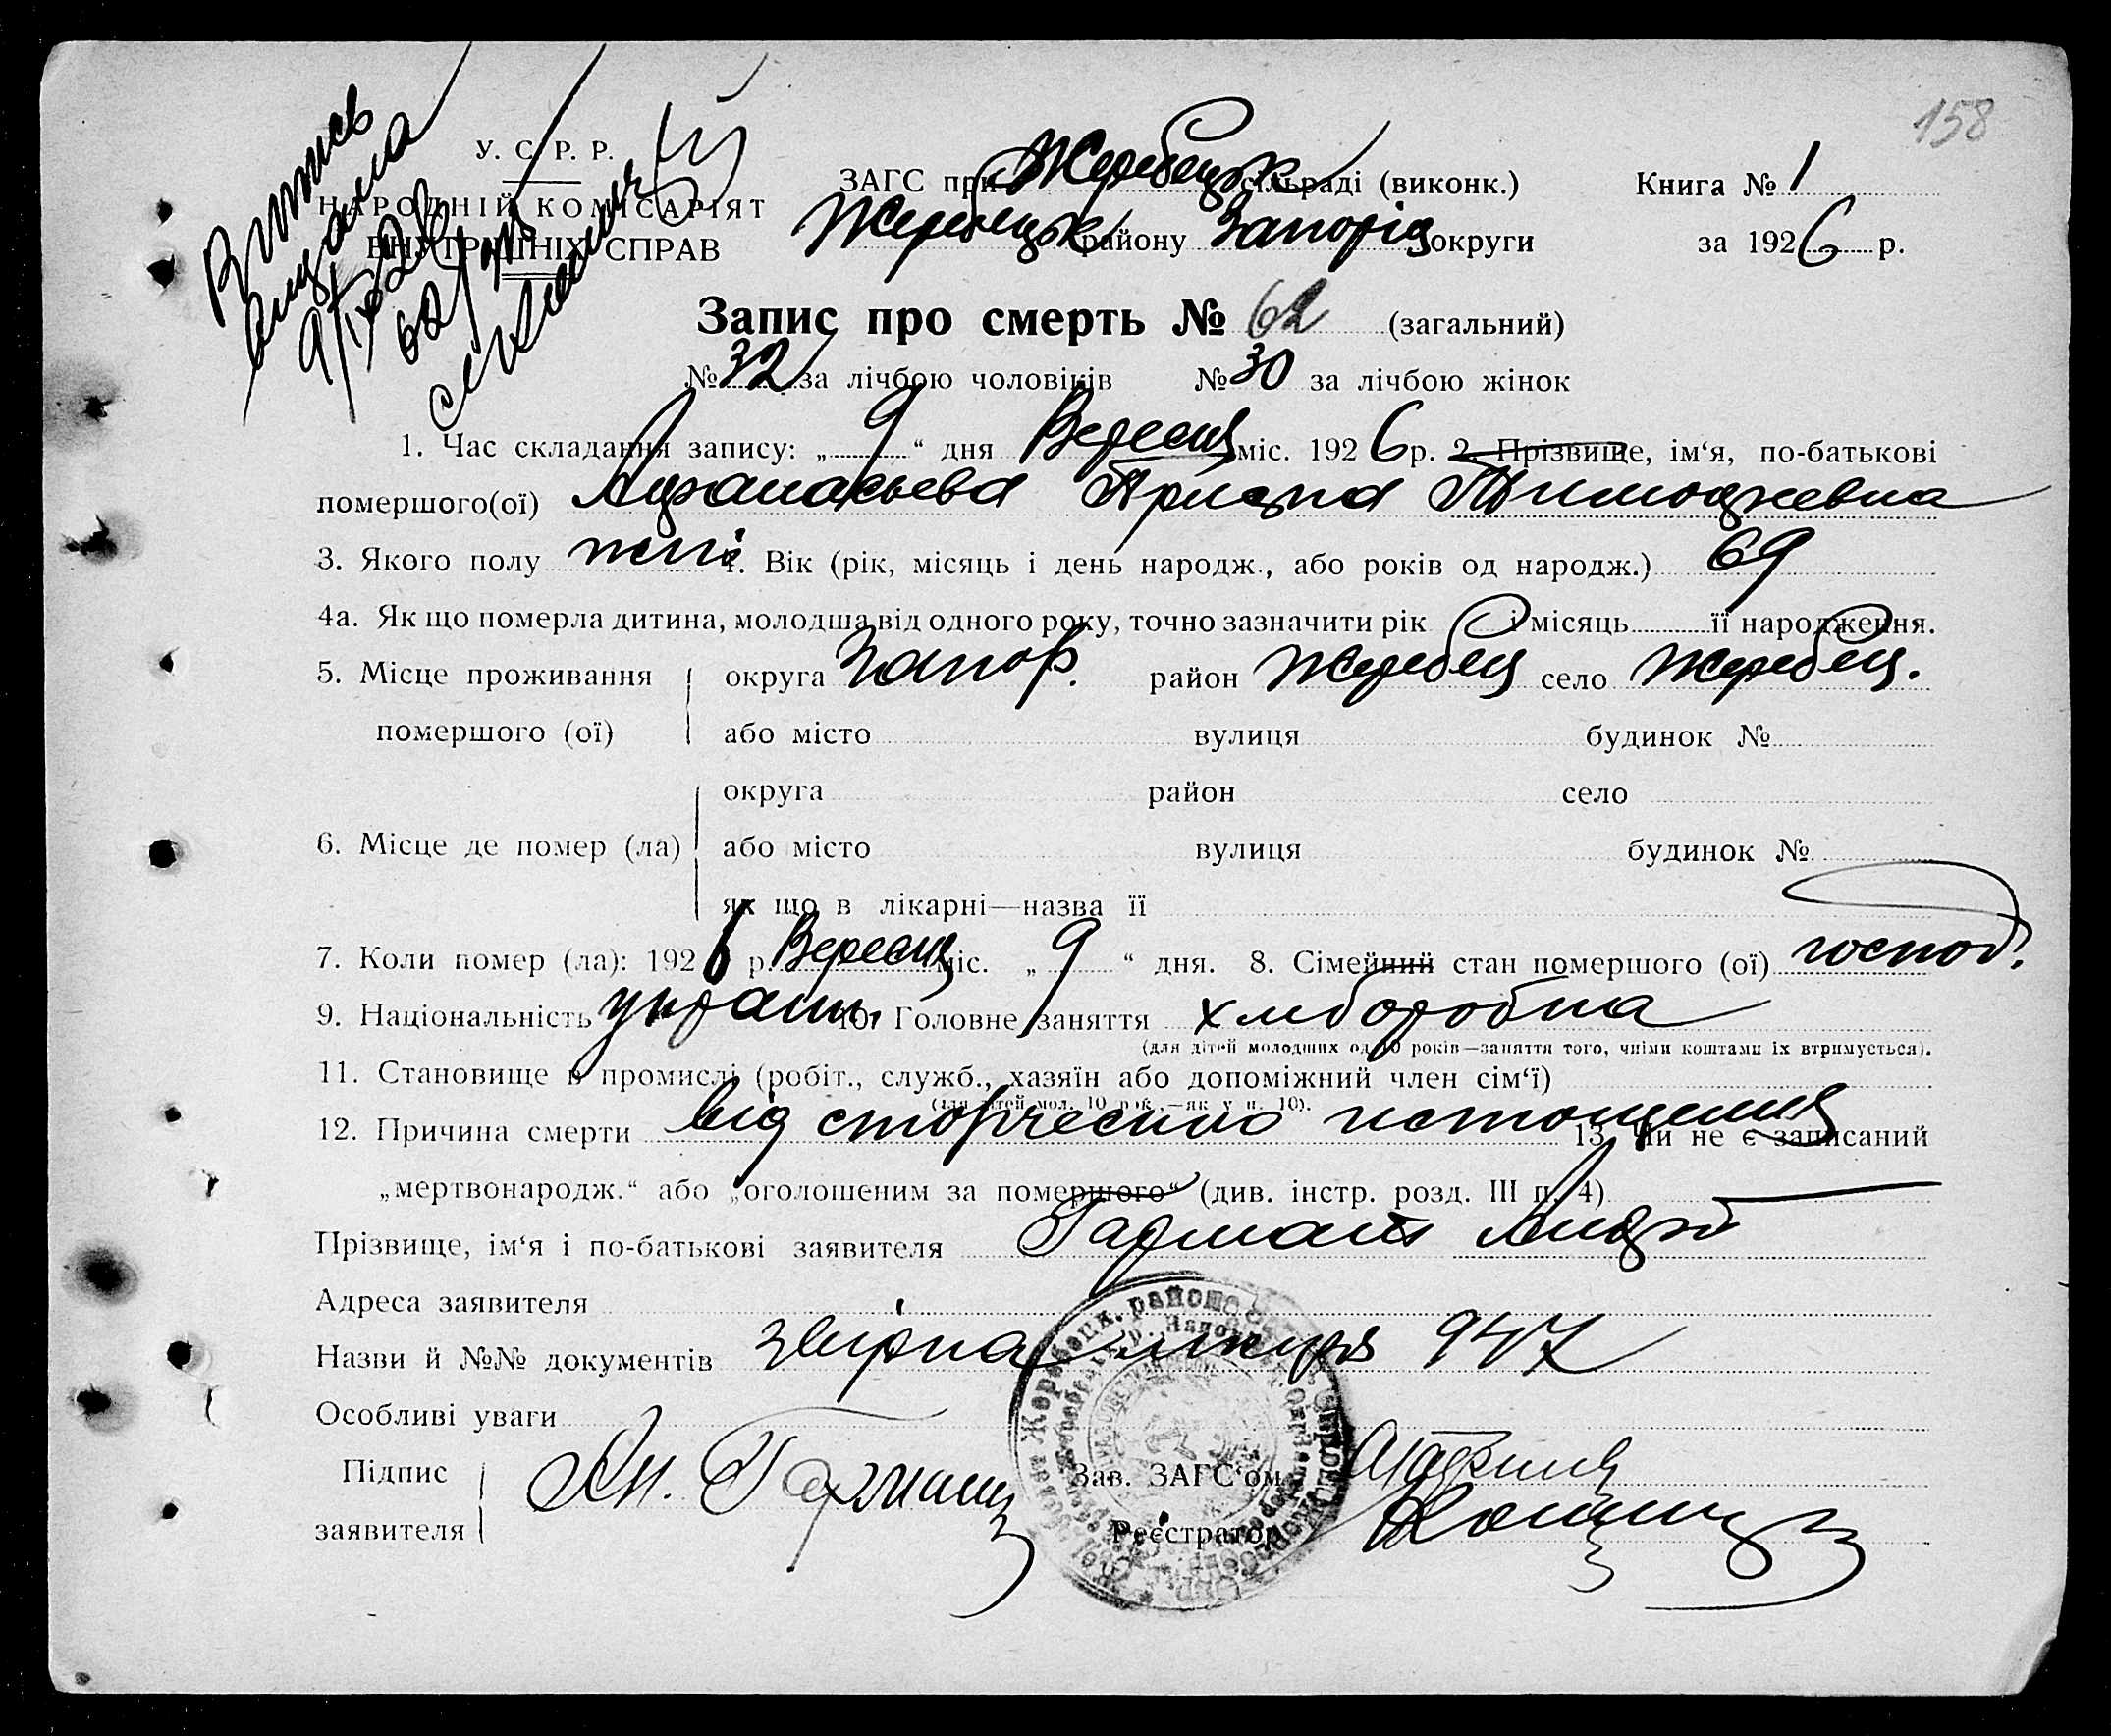 158
Витись
видана
9/IX 26
У. С. Р. Р.
НАРОДНІЙ КОМІСАРІЯТ
ВНУТРІШНІХ СПРАВ
ЗАГС при Жеребецьк сільраді (виконк.) Книга № 1
Жеребецьк району Запоріз округи за 1926 р.
Запис про смерть № 62 (загальний)
№ 32 за лічбою чоловіків № 30 за лічбою жінок
1. Час складання запису: „ 9 “ дня Вересня міс. 1926 р. 2. Прізвище, ім‘я, по-батькові
помершого(ої) Афанасьева Тимофеевна
3. Якого полу жін 4. Вік (рік, місяць і день народж., або років од народж.) 69
4а. Як що померла дитина, молодша від одного року, точно зазначити рік і місяць її народження.
5. Місце проживання округа Запор. район Жеребец село Жеребец.
помершого (ої) або місто вулиця будинок №
округа район село
6. Місце де помер (ла) або місто вулиця будинок №
як що в лікарні—назва її
7. Коли помер (ла): 1926 р. Вересня міс. „ 9 “ дня. 8. Сімейний стан помершого (ої) господ.
9. Національність україн. 10. Головне заняття хліборобка
(для дітей молодших од 10 років—заняття того, чиїми коштами їх втримується).
11. Становище в промислі (робіт., служб., хазяїн або допоміжний член сім‘ї)
(для дітей мол. 10 рок.,—як у п. 10).
12. Причина смерти від истощения 13. Чи не є записаний
„мертвонародж.“ або „оголошеним за помершого“ (див. інстр. розд. III п. 4)
Прізвище, ім‘я і по-батькові заявителя Гармаш Андрій
Адреса заявителя
Назви й №№ документів 947
Особливі уваги
Підпис Ан. Гармаш Зав. ЗАГС‘ом
заявителя Реєстратор